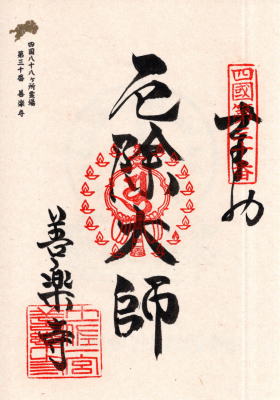 奉納
四國第三十番
厄除大師
善楽寺
四国八十八ヶ所霊場
第三十番 善楽寺